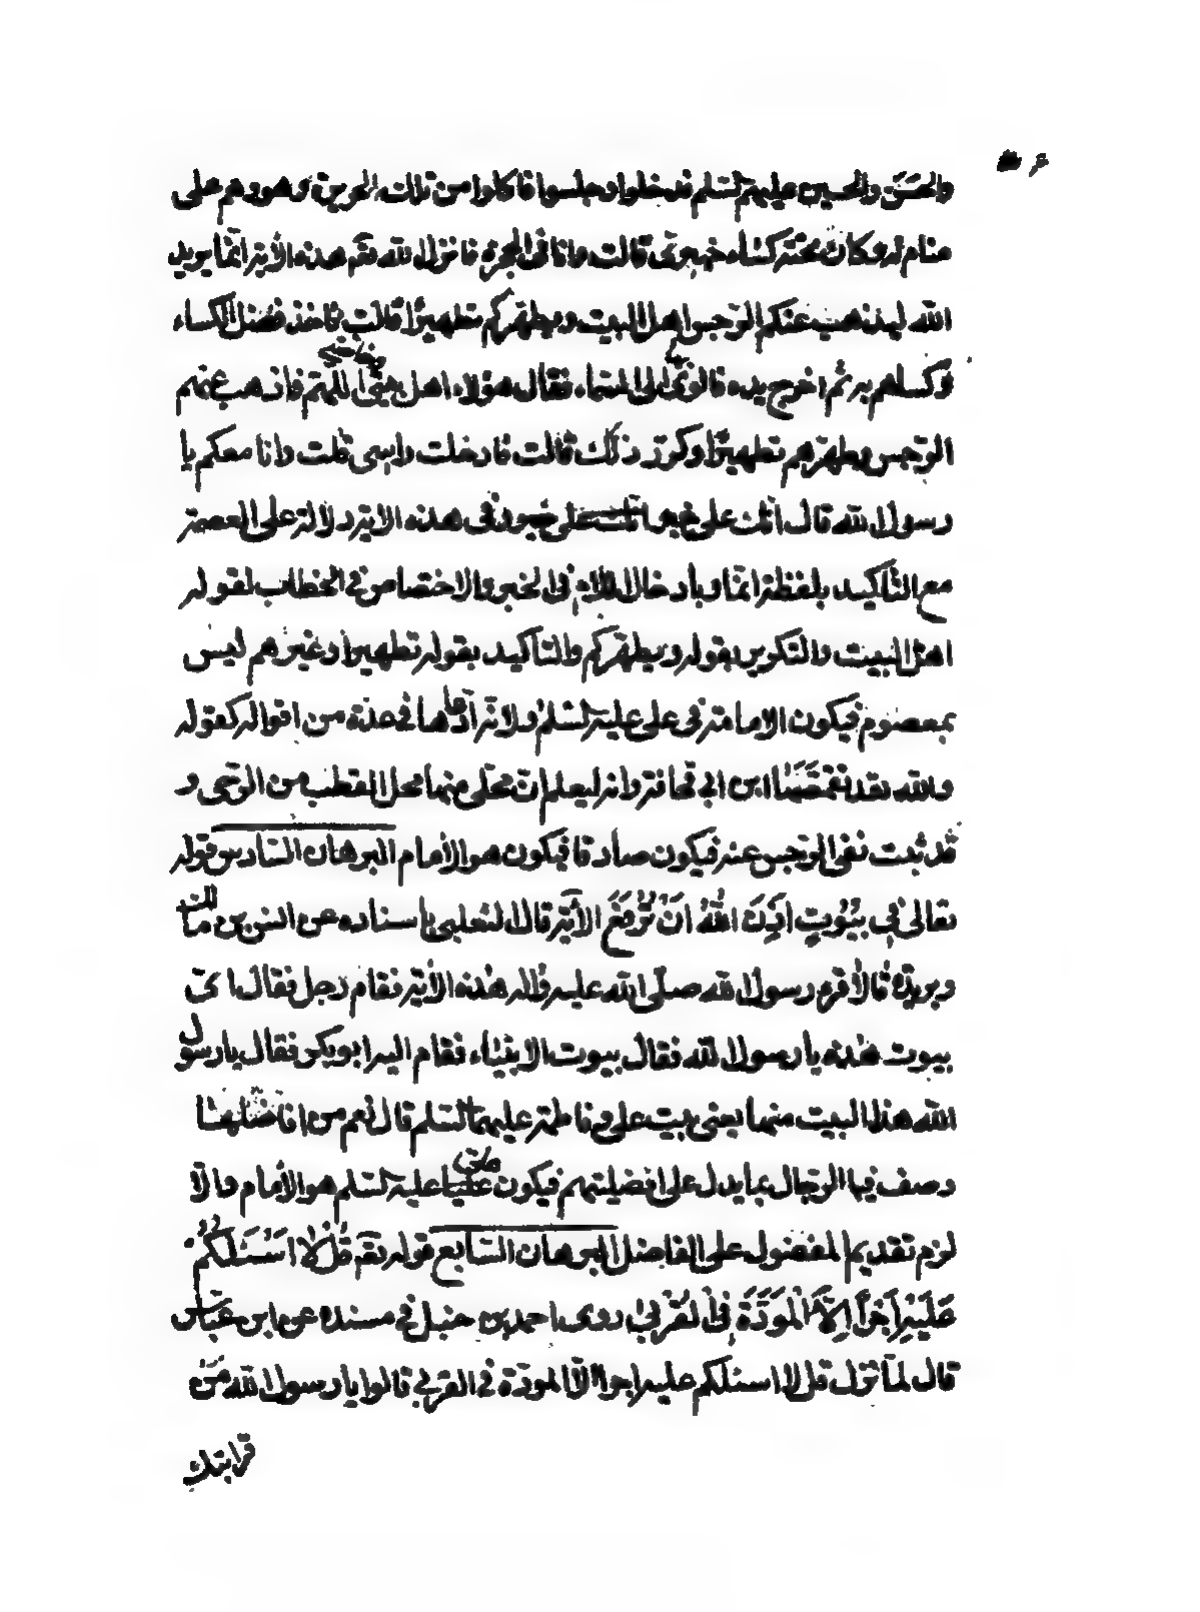 والحسن والحسين عليهم السلم فدخلوا وجلسوا فاكلوا من تلك الحريرة وهو وهم على
منام له وكان تحته كساء خيبرى قالت وانا فى الحجرة فانزل الله تعه هذه الأية انما يريد
الله ليذهب عنكم الرجس اهل البيت ويطهركم تطهيرا قالت فاخذ فضل الكساء
وكساهم به ثم اخرج يده فالوى بها الى السماء فقال هؤلاء اهل بيتى وخاصتى اللهم فاذهب عنهم
الرجس وطهرهم تطهيرا وكرر ذلك قالت فادخلت راسى قلت وانا معكم يا
رسول الله قال انك على خير وفى هذه الاية دلالة على العصمة
مع التأكيد بلفظة انما وبأدخال اللام فى الخبر والاختصاص فى الخطاب لقوله
اهل البيت والتكرير بقوله ويطهركم والتأكيد بقوله تطهيرا وغيرهم ليس
بمعصوم فيكون الامامة فى على عليه السلم ولانه ادعاها فى عدة من اقواله كقوله
والله لقد تقمصها ابن ابى قحافة وانه ليعلم ان محلى منها محل القطب من الرحى و
قد ثبت نفى الرجس عنه فيكون صادقا فيكون هو الأمام البرهان السادس قوله
تعالى فِى بُيُوتٍ اَذِنَ اللهُ اَنْ تُرْفَعَ الأية قال الثعلبى باسناده عن انس بن مالك
وبريدة قالا قرء رسول الله صلى الله عليه واله هذه الأية فقام رجل فقال اى
بيوت هذه يا رسول الله فقال بيوت الانبياء فقام اليه ابو بكر فقال يا رسول
الله هذا البيت منها يعنى بيت على وفاطمة عليهما السلم قال نعم من افاضلها
وصف فيها الرجال بما يدل على افضليتهم فيكون على عليه السلم هو الأمام والا
لزم تقديم المفضول على الفاضل البرهان السابع قوله تعه قُلْ لا اَسْئَلُكُمْ
عَلَيْهِ اَجْراً اِلَّا الْمَوَدَّةَ فِى الْقُرْبىٰ روى احمد بن حنبل فى مسنده عن ابن عباس
قال لما نزل قل لا اسئلكم عليه اجرا الا المودة فى القربى قالوا يا رسول الله من
قرابتك